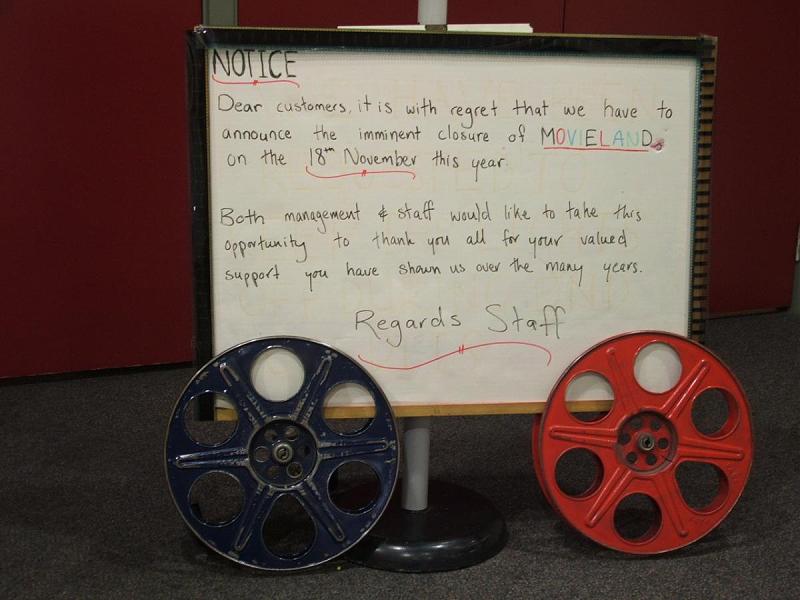 NOTICE
Dear customers, it is with regret that we have to
announce the imminent closure of MOVIELAND
on the 18th November this year.
Both management & staff would like to take this
opportunity to thank you all for your valued
support you have shown us over the many years.
Regards Staff